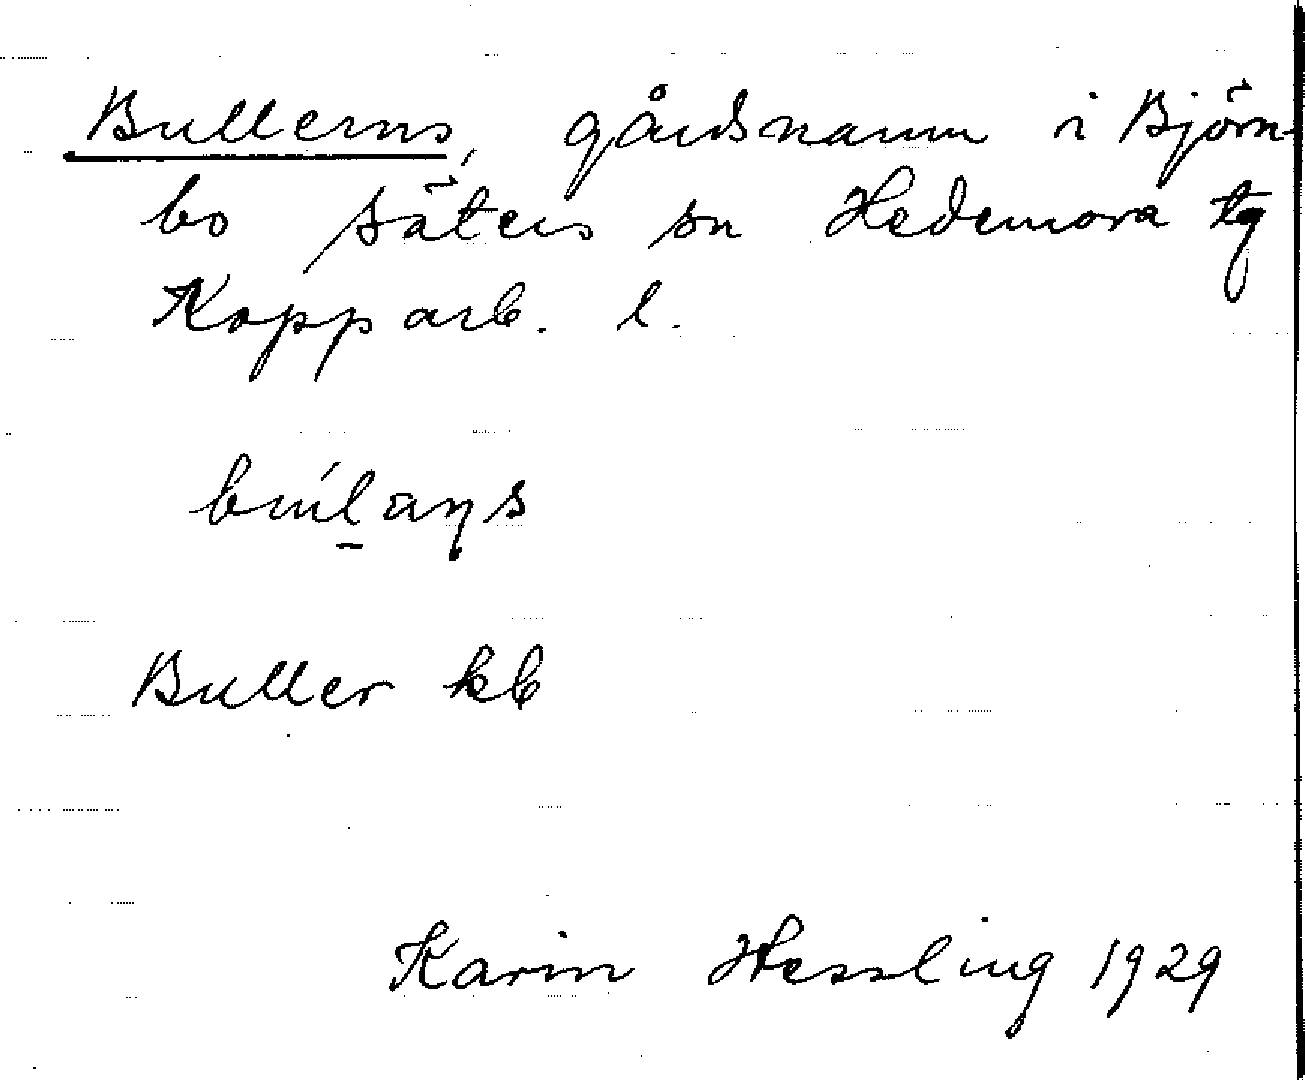 Bullerns, gårdsnamn i Björn-
bo Säters sn Hedemora tg
Kopparb. l.
Buller kb
Karin Hessling 1929